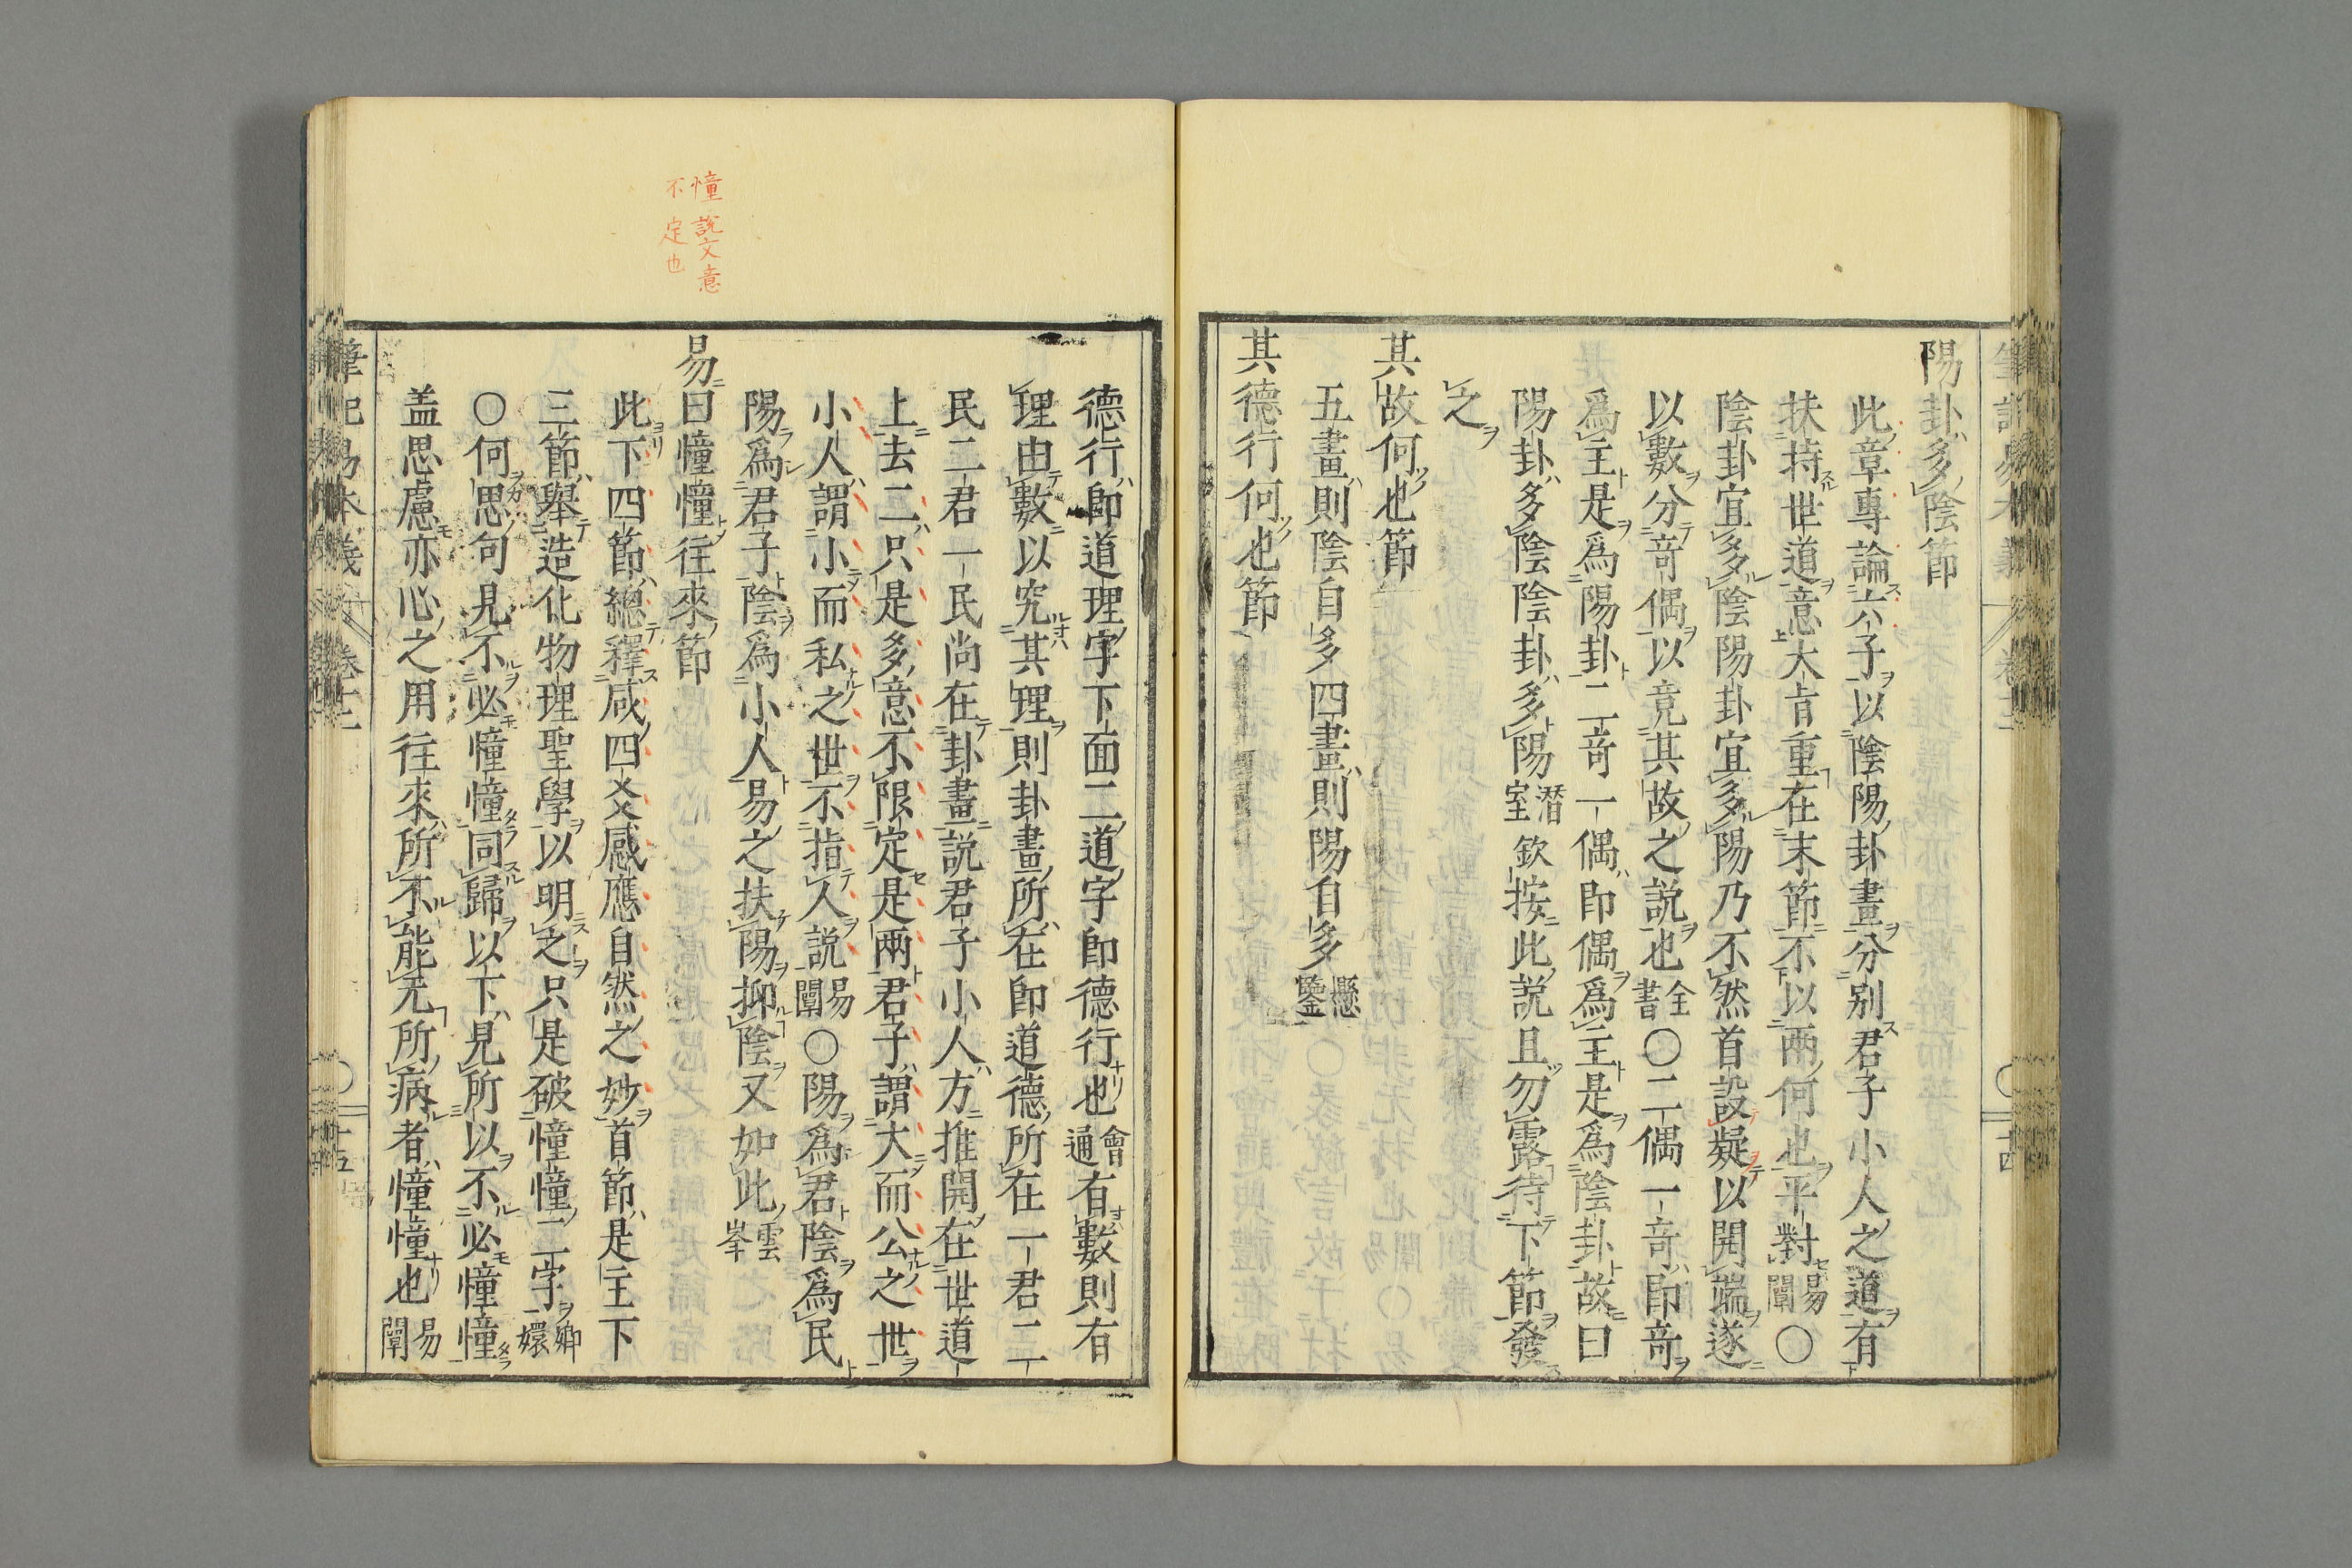 陽卦多陰節
此章專論六子以陰陽卦畫分別君子小人之道有
扶持世道意大㫖重在末節不以兩何也平對易闡〇
陰卦宜多陰陽卦宜多陽乃不然首設疑以開端遂
以數分竒偶以竟其故之說也全書〇二偶一竒即竒
爲主是爲陽卦二竒一偶即偶爲主是爲陰卦故曰
陽卦多陰陰卦多陽潛室欽按此說且勿露待下節發
之
其故何也節
五畫則陰自多四畫則陽自多懸鑒
其德行何也節
德行即道理字下面二道字即德行也會通有數則有
理由數以究其理則卦畫所在即道德所在一君二
民二君一民尚在卦畫說君子小人方推開在世道
上去二只是多意不限定是兩君子謂大而公之世
小人謂小而私之世不指人說易闡〇陽爲君陰爲民
陽爲君子陰爲小人易之扶陽抑陰又如此雲峯
易曰憧憧往來節
此下四節總釋咸四爻感應自然之妙首節是主下
三節舉造化物理聖學以明之只是破憧憧二字嫏嬛
〇何思句見不必憧憧同歸以下見所以不必憧憧
盖思慮亦心之用往來所不能无所病者憧憧也易闡
筆記易本義 卷十二 十五
憧說文意
不定也